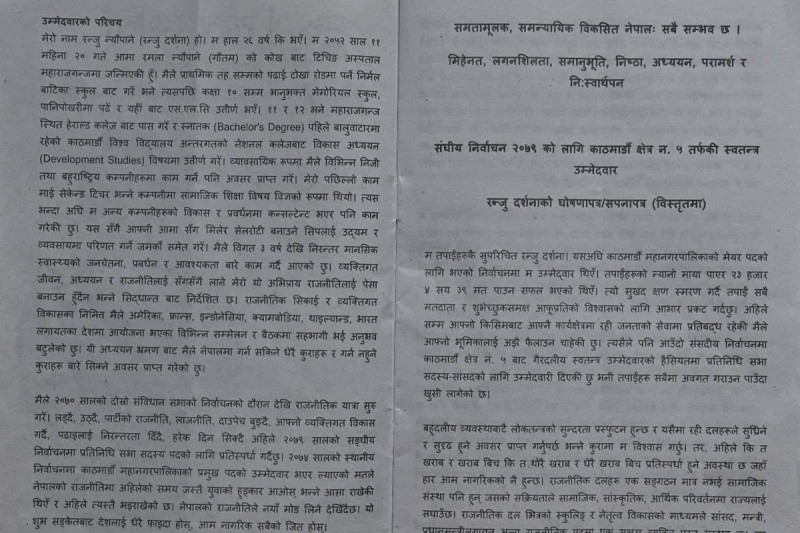 उम्मेदवारको परिचय
मेरो नाम रन्जु न्यौपाने (रन्जु दर्शना) हो। म हाल २६ वर्ष कि भएँ। म २०५२ साल ११
महिना २० गते आमा रमला न्यौपाने (गौतम) को कोख बाट टिचिङ अस्पताल
महाराजगन्जमा जन्मिएकी हूँ। मैले प्राथमिक तह सम्मको पढाई टोखा रोडमा पर्ने निर्मल
बाटिका स्कुल बाट गरें भने त्यसपछि कक्षा १० सम्म भानुभक्त मेमोरियल स्कुल,
पानिपोखरीमा पढें र यहीं बाट एस.एल.सि उत्तीर्ण भएँ। ११ र १२ भने महाराजगन्ज
स्थित हेराल्ड कलेज बाट पास गरें र स्नातक (Bachelor's Degree) पहिले बालुवाटारमा
रहेको काठमाडौं विश्व विद्यालय अन्तरगतको नेशनल कलेजबाट विकास अध्ययन
(Development Studies) विषयमा उत्तीर्ण गरें। व्यावसायिक रूपमा मैले विभिन्न निजी
तथा बहुराष्ट्रिय कम्पनीहरुमा काम गर्ने पनि अवसर प्राप्त गरें। मेरो पछिल्लो काम
माई सेकेन्ड टिचर भन्ने कम्पनीमा सामाजिक शिक्षा विषय विज्ञको रूपमा थियो। त्यस
भन्दा अघि म अन्य कम्पनीहरुको विकास र प्रवर्धनमा कन्सल्टेन्ट भएर पनि काम
गरेकी छु। यस सँगै आफ्नी आमा सँग मिलेर सेलरोटी बनाउने सिपलाई उद्यम र
व्यवसायमा परिणत गर्ने जमर्को समेत गरें। मैले विगत ३ वर्ष देखि निरन्तर मानसिक
स्वास्थ्यको जनचेतना, प्रबर्धन र आवश्यकता बारे काम गर्दै आएको छु। व्यक्तिगत
जीवन, अध्ययन र राजनीतिलाई सँगसँगै लाने मेरो यो अभिप्राय राजनीतिलाई पेसा
बनाउन हुँदैन भन्ने सिद्धान्त बाट निर्देशित छ। राजनीतिक सिकाई र व्यक्तिगत
विकासका निमित्त मैले अमेरिका, फ्रान्स, इन्डोनेसिया, क्याम्बोडिया, थाइल्यान्ड, भारत
लगायतका देशमा आयोजना भएका विभिन्न सम्मेलन र बैठकमा सहभागी भई अनुभव
बटुलेको छु। यो अध्ययन भ्रमण बाट मैले नेपालमा गर्न सकिने धेरै कुराहरू र गर्न नहुने
कुराहरू बारे सिक्ने अवसर प्राप्त गरेको छु।
मैले २०७० सालको दोस्रो संविधान सभाको निर्वाचनको दौरान देखि राजनीतिक यात्रा सुरु
गरें। लड्दै, उठ्दै, पार्टीको राजनीति, लाजनीति, दाउपेच बुझ्दै, आफ्नो व्यक्तिगत विकास
गर्दै, पढाइलाई निरन्तरता दिँदै, हरेक दिन सिक्दै अहिले २०७९ सालको सङ्घीय
निर्वाचनमा प्रतिनिधि सभा सदस्य पदको लागि प्रतिस्पर्धा गर्दैछु। २०७४ सालको स्थानीय
निर्वाचनमा काठमाडौं महानगरपालिकाको प्रमुख पदको उम्मेदवार भएर ल्याएको मतले
नेपालको राजनीतिमा अहिलेको समय जस्तै युवाको हुङ्कार आओस् भन्ने आसा राखेकी
थिएँ र अहिले त्यस्तै भइराखेको छ। नेपालको राजनीतिले नयाँ मोड लिने देखिँदैछ। यो
शुभ सङ्केतबाट देशलाई धेरै फाइदा होस्, आम नागरिक सबैको जित होस्।
समतामूलक, समन्यायिक विकसित नेपालः सबै सम्भव छ ।
मिहेनत, लगनशिलता, समानुभूति, निष्ठा, अध्ययन, परामर्श र
नि:स्वार्थपन
संघीय निर्वाचन २०७९ को लागि काठमाडौं क्षेत्र न. ५ तर्फकी स्वतन्त्र
उम्मेदवार
रन्जु दर्शनाको घोषणापत्र/सपनापत्र (विस्तृतमा)
म तपाईंहरुकै सुपरिचित रन्जु दर्शना। यसअघि काठमाडौं महानगरपालिकाको मेयर पदको
लागि भएको निर्वाचनमा म उम्मेदवार थिएँ। तपाईंहरुको न्यानो माया पाएर २३ हजार
४ सय ३९ मत पाउन सफल भएको थिएँ। त्यो सुखद क्षण स्मरण गर्दै तपाईं सबै
मतदाता र शुभेच्छुकसमक्ष आफूप्रतिको विश्वासको लागि आभार प्रकट गर्दछु। अहिले
सम्म आफ्नो किसिमबाट आफ्नै कार्यक्षेत्रमा रही जनताको सेवामा प्रतिबद्ध रहेकी मैले
आफ्नो भूमिकालाई अझै फैलाउन चाहेकी छु। त्यसैले पनि आउँदो संसदीय निर्वाचनमा
काठमाडौं क्षेत्र नं. ५ बाट गैरदलीय स्वतन्त्र उम्मेदवारको हैसियतमा प्रतिनिधि सभा
सदस्य-सांसदको लागि उम्मेदवारी दिएकी छु भनी तपाईंहरु सबैमा अवगत गराउन पाउँदा
खुसी लागेको छ।
बहुदलीय व्यवस्थाबाटै लोकतन्त्रको सुन्दरता प्रस्फुटन हुन्छ र यसैमा रही दलहरूले सुध्रिने
र सुदृढ हुने अवसर प्राप्त गर्नुपर्छ भन्ने कुरामा म विश्वास गर्छु। तर, अहिले कि त
खराब र खराब बिच कि त थोरै खराब र धेरै खराब बिच प्रतिस्पर्धा हुने अवस्था छ जहाँ
हार आम नागरिकको नै हुन्छ। राजनीतिक दलहरू एक सङ्गठन मात्र नभई सामाजिक
संस्था पनि हुन् जसको सक्रियताले सामाजिक, सांस्कृतिक, आर्थिक परिवर्तनमा राज्यलाई
सघाउँछ। राजनीतिक दल भित्रको स्कुलिङ्ग र नेतृत्व विकासको माध्यमले सांसद, मन्त्री,